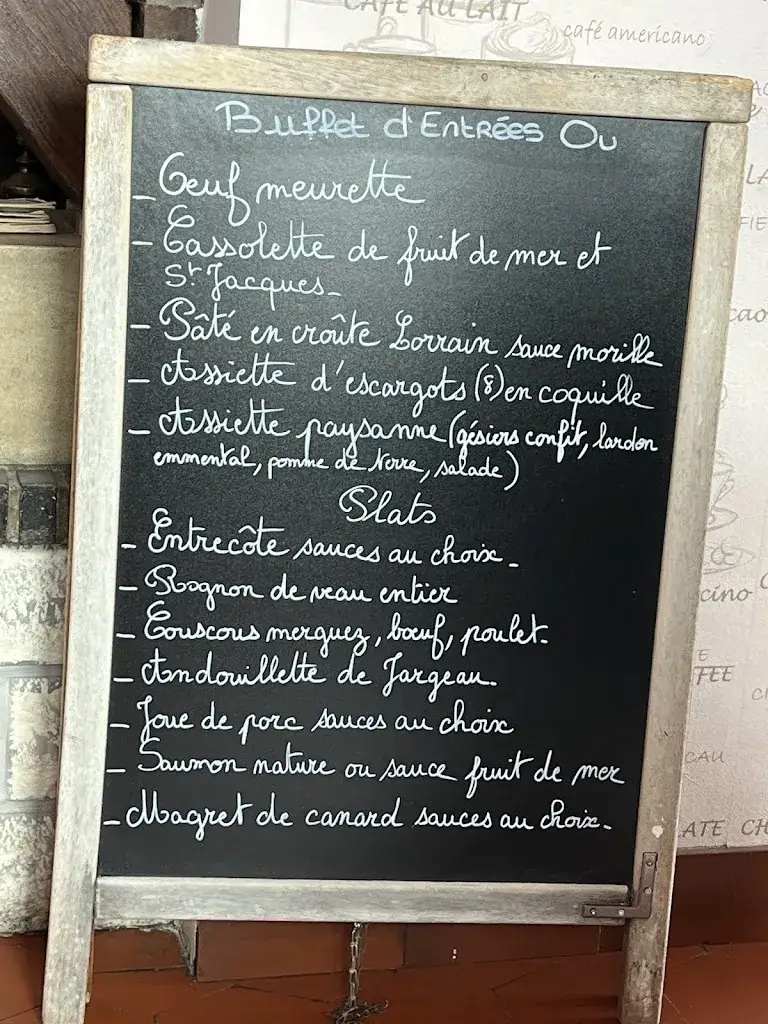 CAFÉ AU LAIT
café americano
Buffet d'Entrées Ou
- Oeuf meurette
- Cassolette de fruit de mer et
St Jacques -
- Pâté en croûte Lorrain sauce morille
- Assiette d'escargots (8) en coquille
- Assiette paysanne (gésiers confit, lardon
emmental, pomme de terre, salade)
Plats
- Entrecôte sauces au choix -
- Rognon de veau entier
- Couscous merguez, bœuf, poulet.
- Andouillette de Jargeau.
- Joue de porc sauces au choix
- Saumon nature ou sauce fruit de mer
- Magret de canard sauces au choix.